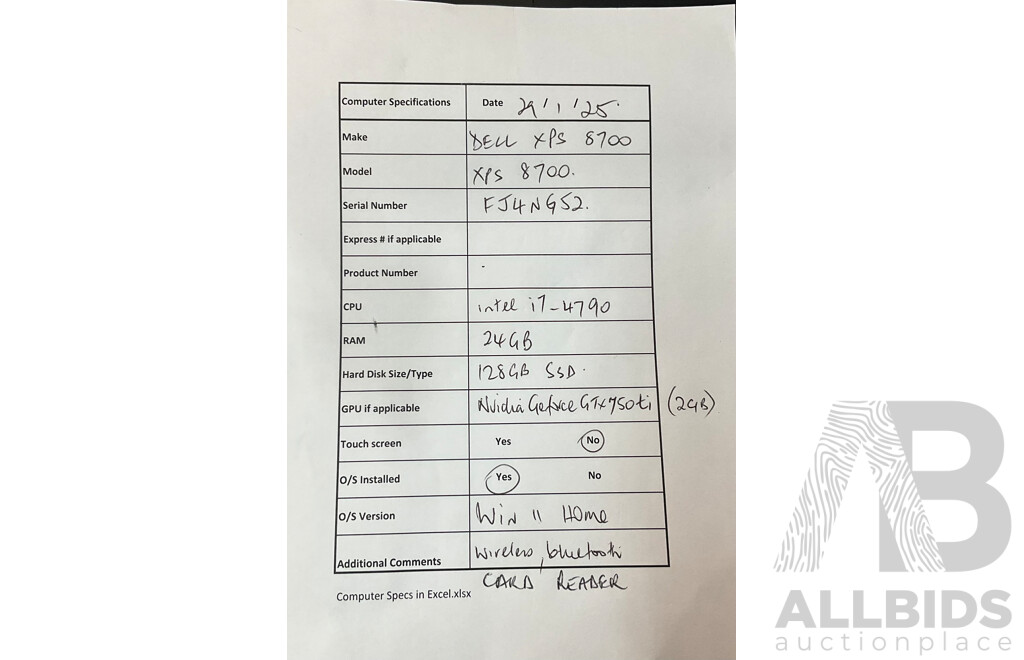 Computer Specifications Date 29/1/25
Make DELL XPS 8700
Model XPS 8700.
Serial Number FJ4NG52.
Express # if applicable
Product Number -
CPU intel i7-4790
RAM 24GB
Hard Disk Size/Type 128GB SSD.
GPU if applicable Nvidia Geforce GTX 750ti (2GB)
Touch screen Yes No
O/S Installed Yes No
O/S Version Win 11 Home
Additional Comments Wireless, bluetooth
CARD READER
Computer Specs in Excel.xlsx
AB
ALLBIDS
auctionplace